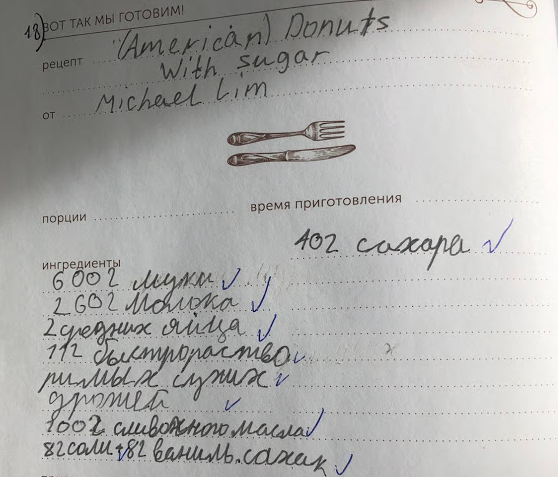 18) ВОТ ТАК МЫ ГОТОВИМ!
рецепт (American) Donuts
With sugar
от Michael Lim
порции время приготовления
40г сахара
ингредиенты
600г муки
260г молока
2 средних яйца
11г быстрораство
римых сухих
дрожей
100г сливочного масла
8г соли + 8г ваниль. сахар